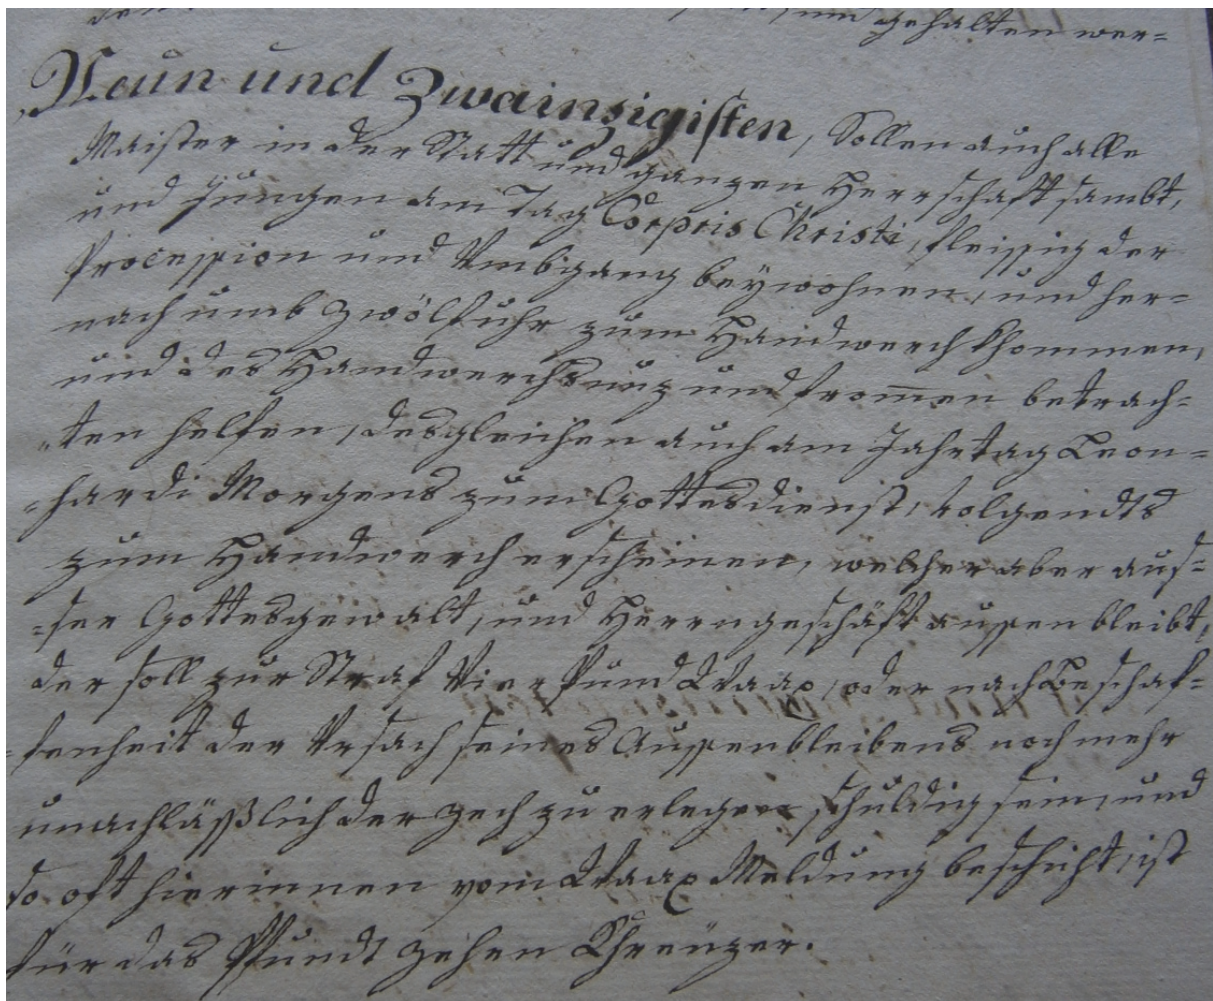 und gehalten wer=
Neun und Zwainzigisten, Sollen auch alle
Maister in der Statt und ganzen Herrschafft sambt,
und Jüngen am Tag Corporis Christi, fleissig der
Procession und Umbgang beÿwohnen, und her=
nach umb zwölf uhr zum Handwerch khommen,
und des Handwerchs nuz und fromen betrach=
ten helfen, desgleichen auch am Jahrtag Leon=
=hardi Morgens zum Gottesdienst, volgendts
zum Handwerch erscheinen, welcher aber aus=
=ser Gottesgewalt, und Herrngeschäfft aussenbleibt,
der soll zur Straf Vier Pfund Waax, oder nach Beschaf=
=fenheit der Ursach seines Aussenbleibens noch mehr
unachläßlich der zech zu erlegen schuldig sein, und
so oft hierinnen vom Waax Meldung beschicht, ist
für das Pfundt zehen Khreüzer.